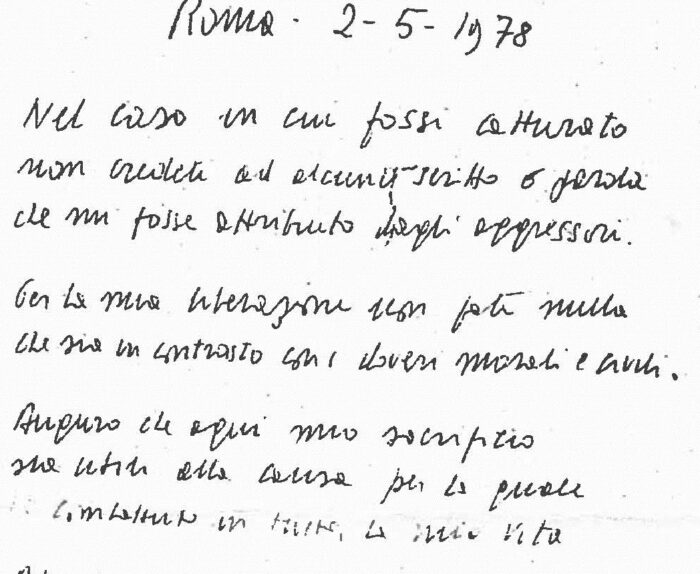 Roma. 2-5-1978
Nel caso in cui fossi catturato
non credete ad alcun scritto o parola
che mi fosse attribuito dagli aggressori.
Per la mia liberazione non fate nulla
che sia in contrasto con i doveri morali e civili.
Auguro che ogni mio sacrificio
sia utile alla causa per la quale
combattuto in tutta la mia vita